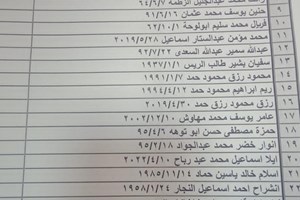 ٩ حنين يوسف محمد عثمان ٩١/٦/١٦
١٠ فريال محمد سليم ابولوحة ٦٢/١٠/١
١١ محمد مؤمن عبدالستار اسماعيل ٢٠١٩/٥/٢٨
١٢ عبدالله سمير عبدالله السعدي ٩٢/٧/٢٢
١٣ سفيان بشير طالب الريس ١٩٣٧/١/١
١٤ محمود رزق محمود حمد ١٩٩١/٧/١
١٥ ريم ابراهيم محمود حمد ١٩٩٤/٤/١٢
١٦ رزق محمود رزق حمد ٢٠١٩/٤/٣٠
١٧ عامر يوسف محمد مهاوش ٢٠٠٢/١٢/١٠
١٨ حمزة مصطفى حسن ابو توهه ٩٥/٤/٦
١٩ انوار خضر محمد عبدالجواد ٩٥/٢/١٨
٢٠ ايلا اسماعيل محمد عبد رباح ٢٠٢٢/٤/١٠
٢١ اسلام خالد ياسين حماد ١٩٨٥/١١/١٤
٢٢ انشراح احمد اسماعيل النجار ١٩٥٨/١/٢٤